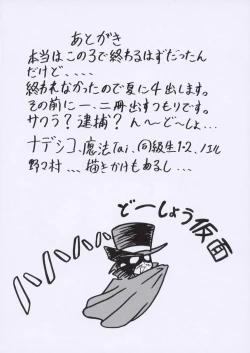 あとがき
本当はこの3で終わるはずだったん
だけど、、、、
終われなかったので夏に4出します。
その前に一、二冊出すつもりです。
サクラ？逮捕？ん～ど～しょ…
ナデシコ、魔法Tai、同級生1・2、ノエル
野々村、、描きかけもあるし…
どーしょう仮面
ハハハハハ